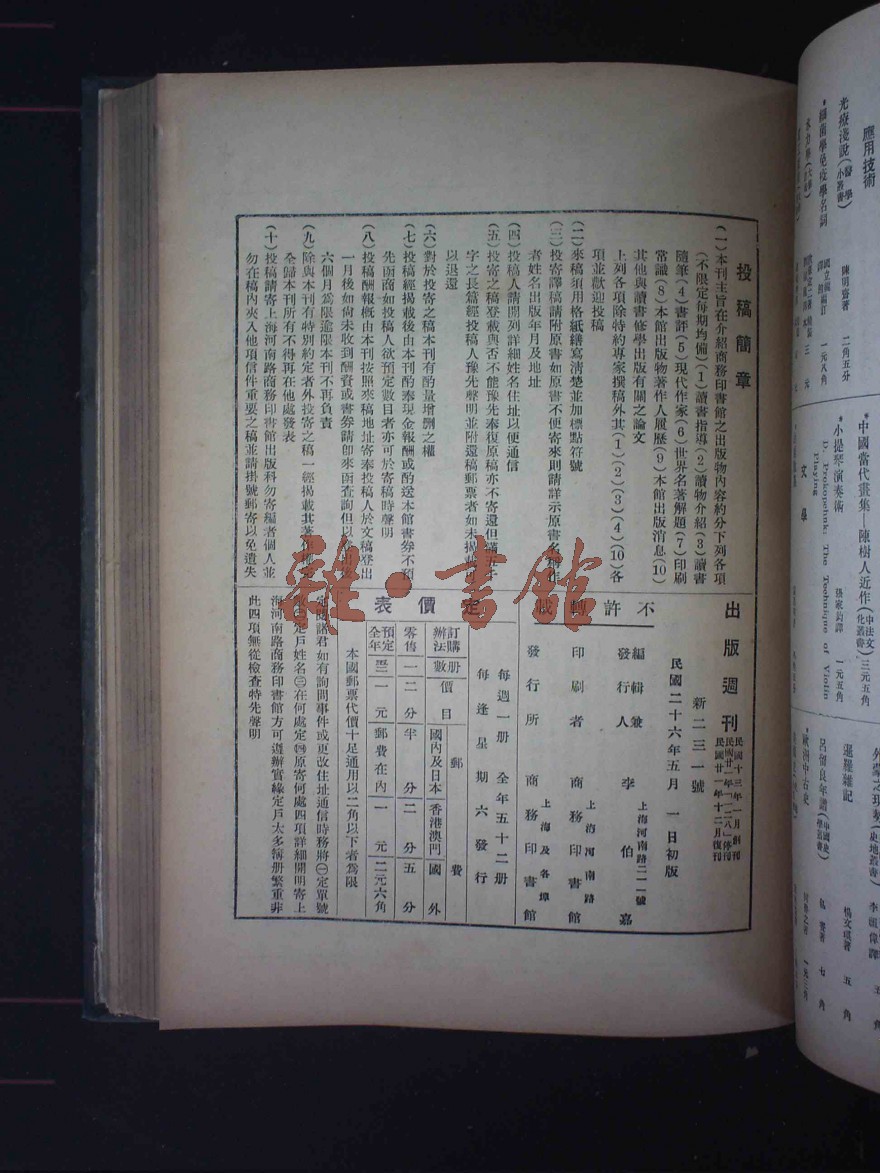 投稿簡章
(一)本刊主旨在介紹商務印書館之出版物內容約分下列各項
(不限定每期均備)(1)讀書指導(2)讀物介紹(3)讀書
隨筆(4)書評(5)現代作家(6)世界名著解題(7)印刷
常識(8)本館出版物著作人履歷(9)本館出版消息(10)
其他與讀書修學出版有關之論文
上列各項除特約專家撰稿外其(1)(2)(3)(4)(10)各
項並歡迎投稿
(二)來稿須用格紙繕寫清楚並加標點符號
(三)投寄譯稿請附原書如原書不便寄來則請詳示原書名
者姓名出版年月及地址
(四)投稿人請開列詳細姓名住址以便通信
(五)投寄之稿登載與否不能豫先奉復原稿亦不寄還但
字之長篇經投稿人豫先聲明並附還稿郵票者如未揭載
以退還
(六)對於投寄之稿本刊有酌量增删之權
(七)投稿經揭載後由本刊酌奉現金報酬或酌送本館書券不預
先函商如投稿人欲預定數目者亦可於寄稿時聲明
(八)投稿酬報概由本刊按照來稿地址寄奉投稿人於文稿登出
一月後如尙未收到酬資或書券請即來函查詢但以
六個月爲限逾限本刊不再負責
(九)除與本刊有特別約定者外投寄之稿一經揭載其著
全歸本刊所有不得再在他處發表
(十)投稿請寄上海河南路商務印書館出版科勿寄編者個人並
勿在稿內夾入他項信件重要之稿並請掛號郵寄以免遺失
出版週刊
民國十三年一月創刊
民國廿一年「一二八」停刊
民國廿一年十二月復刊
新二三一號
民國二十六年五月一日初版
不許轉載
編輯兼發行人 李伯嘉
上海河南路二一一號
印刷者 商務印書館
上海河南路
發行所 商務印書館
上海及各埠
定價表
每週一册 全年五十二册
每逢星期六發行
訂購辦法 册數 價目 郵費
國內及日本 香港澳門 國外
零售 一 二分 半分 二分 五分
預定全年 一元 郵費在內 一元 二元六角
本國郵票代價十足通用以二角以下者爲限
定閱諸君如有詢問事件或更改住址通信時務將㊀定單號
定戶姓名㊂在何處定㊃原寄何處四項詳細開明寄上
海河南路商務印書館方可遵辦實緣定戶太多簿册繁重非
此四項無從檢查特先聲明
雜·書館
應用技術
光療淺說(醫學小叢書)
陳明齋著 二角五分
*細菌學免疫學名詞
國立編譯館編訂 一元八角
*中國當代畫集—陳樹人近作(中法文化叢書)三元五角
*小提琴演奏術
D. Prokopetink: The Technique of Violin Playing
張家鈞譯 一元五角
文學
暹羅雜記
楊文瑛著 五角
呂留良年譜(中國史學叢書)
著 七角
*歐洲中古史